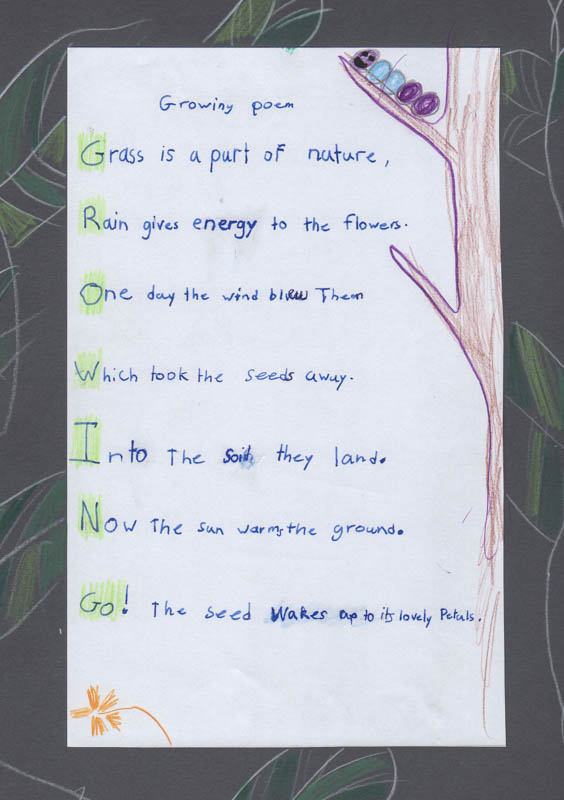 Growiny poem
Grass is a part of nature,
Rain gives energy to the flowers.
One day the wind blew Them
Which took the seeds away.
Into The soil they land.
Now The sun warms the ground.
Go! The seed wakes up to its lovely Petals.